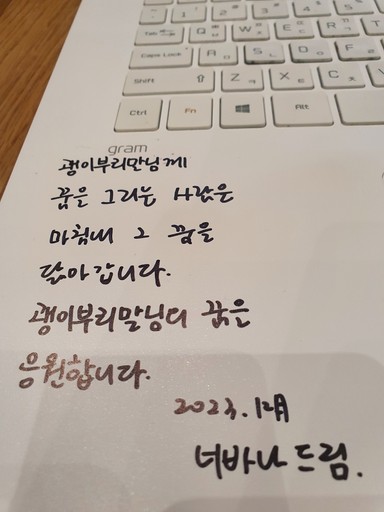 Q W E R
Tab
Caps Lock A S D F
Shift Z X C
ㅋ ㅌ ㅊ
Ctrl Fn Alt
gram
괭이부리말님께
꿈을 그리는 사람은
마침내 그 꿈을
닮아갑니다.
괭이부리말님의 꿈을
응원합니다.
2023. 12月
너바나 드림.